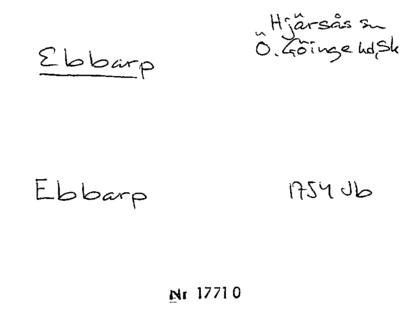 Hjärsås sn
Ebbarp
Ö. Göinge hd, Sk
Ebbarp 1754 Jb
Nr 17710